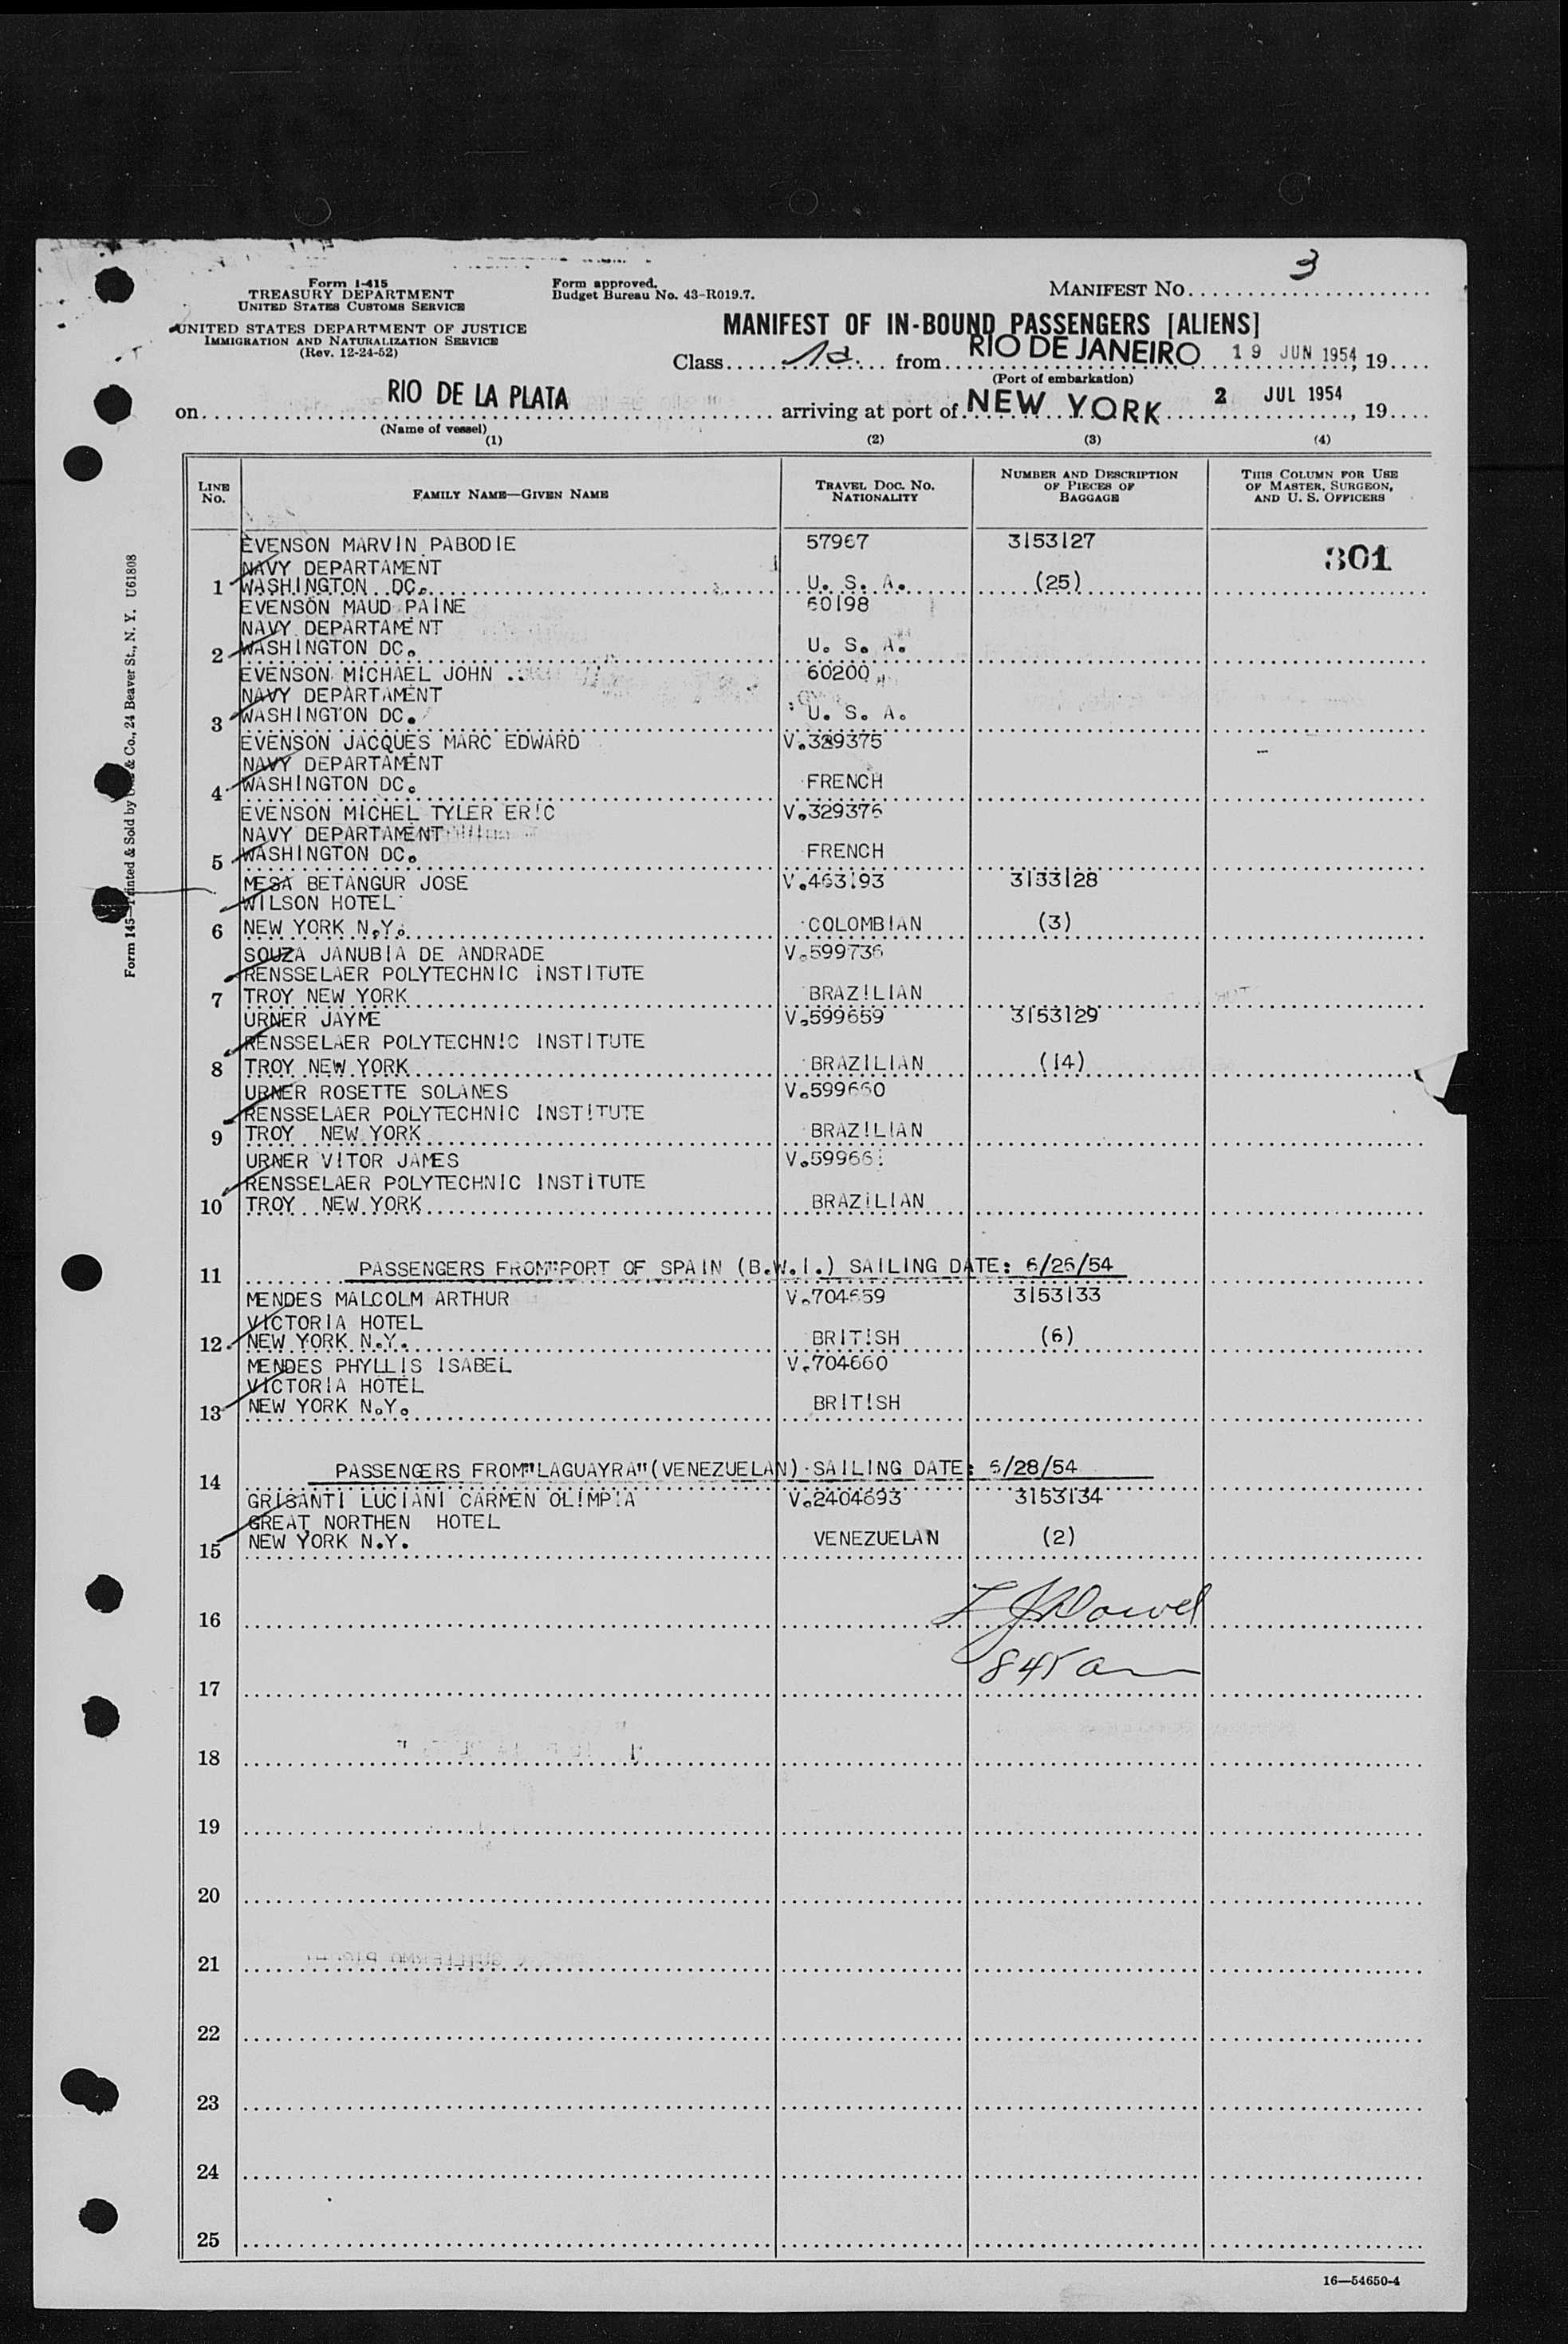 3
Form I-415
TREASURY DEPARTMENT
UNITED STATES CUSTOMS SERVICE
Form approved.
Budget Bureau No. 43-R019.7.
MANIFEST NO.
UNITED STATES DEPARTMENT OF JUSTICE
IMMIGRATION AND NATURALIZATION SERVICE
(Rev. 12-24-52)
MANIFEST OF IN-BOUND PASSENGERS [ALIENS]
Class from RIO DE JANEIRO 19 JUN 1954, 19
(Port of embarkation)
on RIO DE LA PLATA arriving at port of NEW YORK 2 JUL 1954, 19
(Name of vessel)
(1) (2) (3) (4)
LINE NO. FAMILY NAME—GIVEN NAME TRAVEL DOC. NO. NATIONALITY NUMBER AND DESCRIPTION OF PIECES OF BAGGAGE THIS COLUMN FOR USE OF MASTER, SURGEON, AND U. S. OFFICERS
EVENSON MARVIN PABODIE 57967 3153127
301
NAVY DEPARTAMENT
1 WASHINGTON DC. U. S. A. (25)
EVENSON MAUD PAINE 60198
NAVY DEPARTAMENT
2 WASHINGTON DC. U. S. A.
EVENSON MICHAEL JOHN .. 60200
NAVY DEPARTAMENT
3 WASHINGTON DC. U. S. A.
EVENSON JACQUES MARC EDWARD V.329375
NAVY DEPARTAMENT
4 WASHINGTON DC. FRENCH
EVENSON MICHEL TYLER ERIC V.329376
NAVY DEPARTAMENT
5 WASHINGTON DC. FRENCH
MESA BETANGUR JOSE V.463193 3133128
WILSON HOTEL
6 NEW YORK N.Y. COLOMBIAN (3)
SOUZA JANUBIA DE ANDRADE V.599736
RENSSELAER POLYTECHNIC INSTITUTE
7 TROY NEW YORK BRAZILIAN
URNER JAYME V.599659 3153129
RENSSELAER POLYTECHNIC INSTITUTE
8 TROY NEW YORK BRAZILIAN (14)
URNER ROSETTE SOLANES V.599660
RENSSELAER POLYTECHNIC INSTITUTE
9 TROY NEW YORK BRAZILIAN
URNER VITOR JAMES V.599661
RENSSELAER POLYTECHNIC INSTITUTE
10 TROY NEW YORK BRAZILIAN
11 PASSENGERS FROM"PORT OF SPAIN (B.W.I.) SAILING DATE: 6/26/54
MENDES MALCOLM ARTHUR V.704659 3153133
VICTORIA HOTEL
12 NEW YORK N.Y. BRITISH (6)
MENDES PHYLLIS ISABEL V.704660
VICTORIA HOTEL
13 NEW YORK N.Y. BRITISH
14 PASSENGERS FROM"LAGUAYRA"(VENEZUELAN) SAILING DATE: 6/28/54
GRISANTI LUCIANI CARMEN OLIMPIA V.2404693 3153134
GREAT NORTHEN HOTEL
15 NEW YORK N.Y. VENEZUELAN (2)
16
845 a
17
18
19
20
21
22
23
24
25
16—54650-4
Form 145—Printed & Sold by & Co., 24 Beaver St., N. Y. U61808